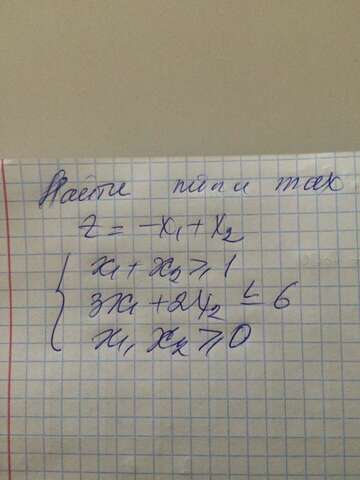 Найти min и max
z = -x₁ + x₂
{ x₁ + x₂ ⩾ 1
3x₁ + 2x₂ ≤ 6
x₁, x₂ ⩾ 0